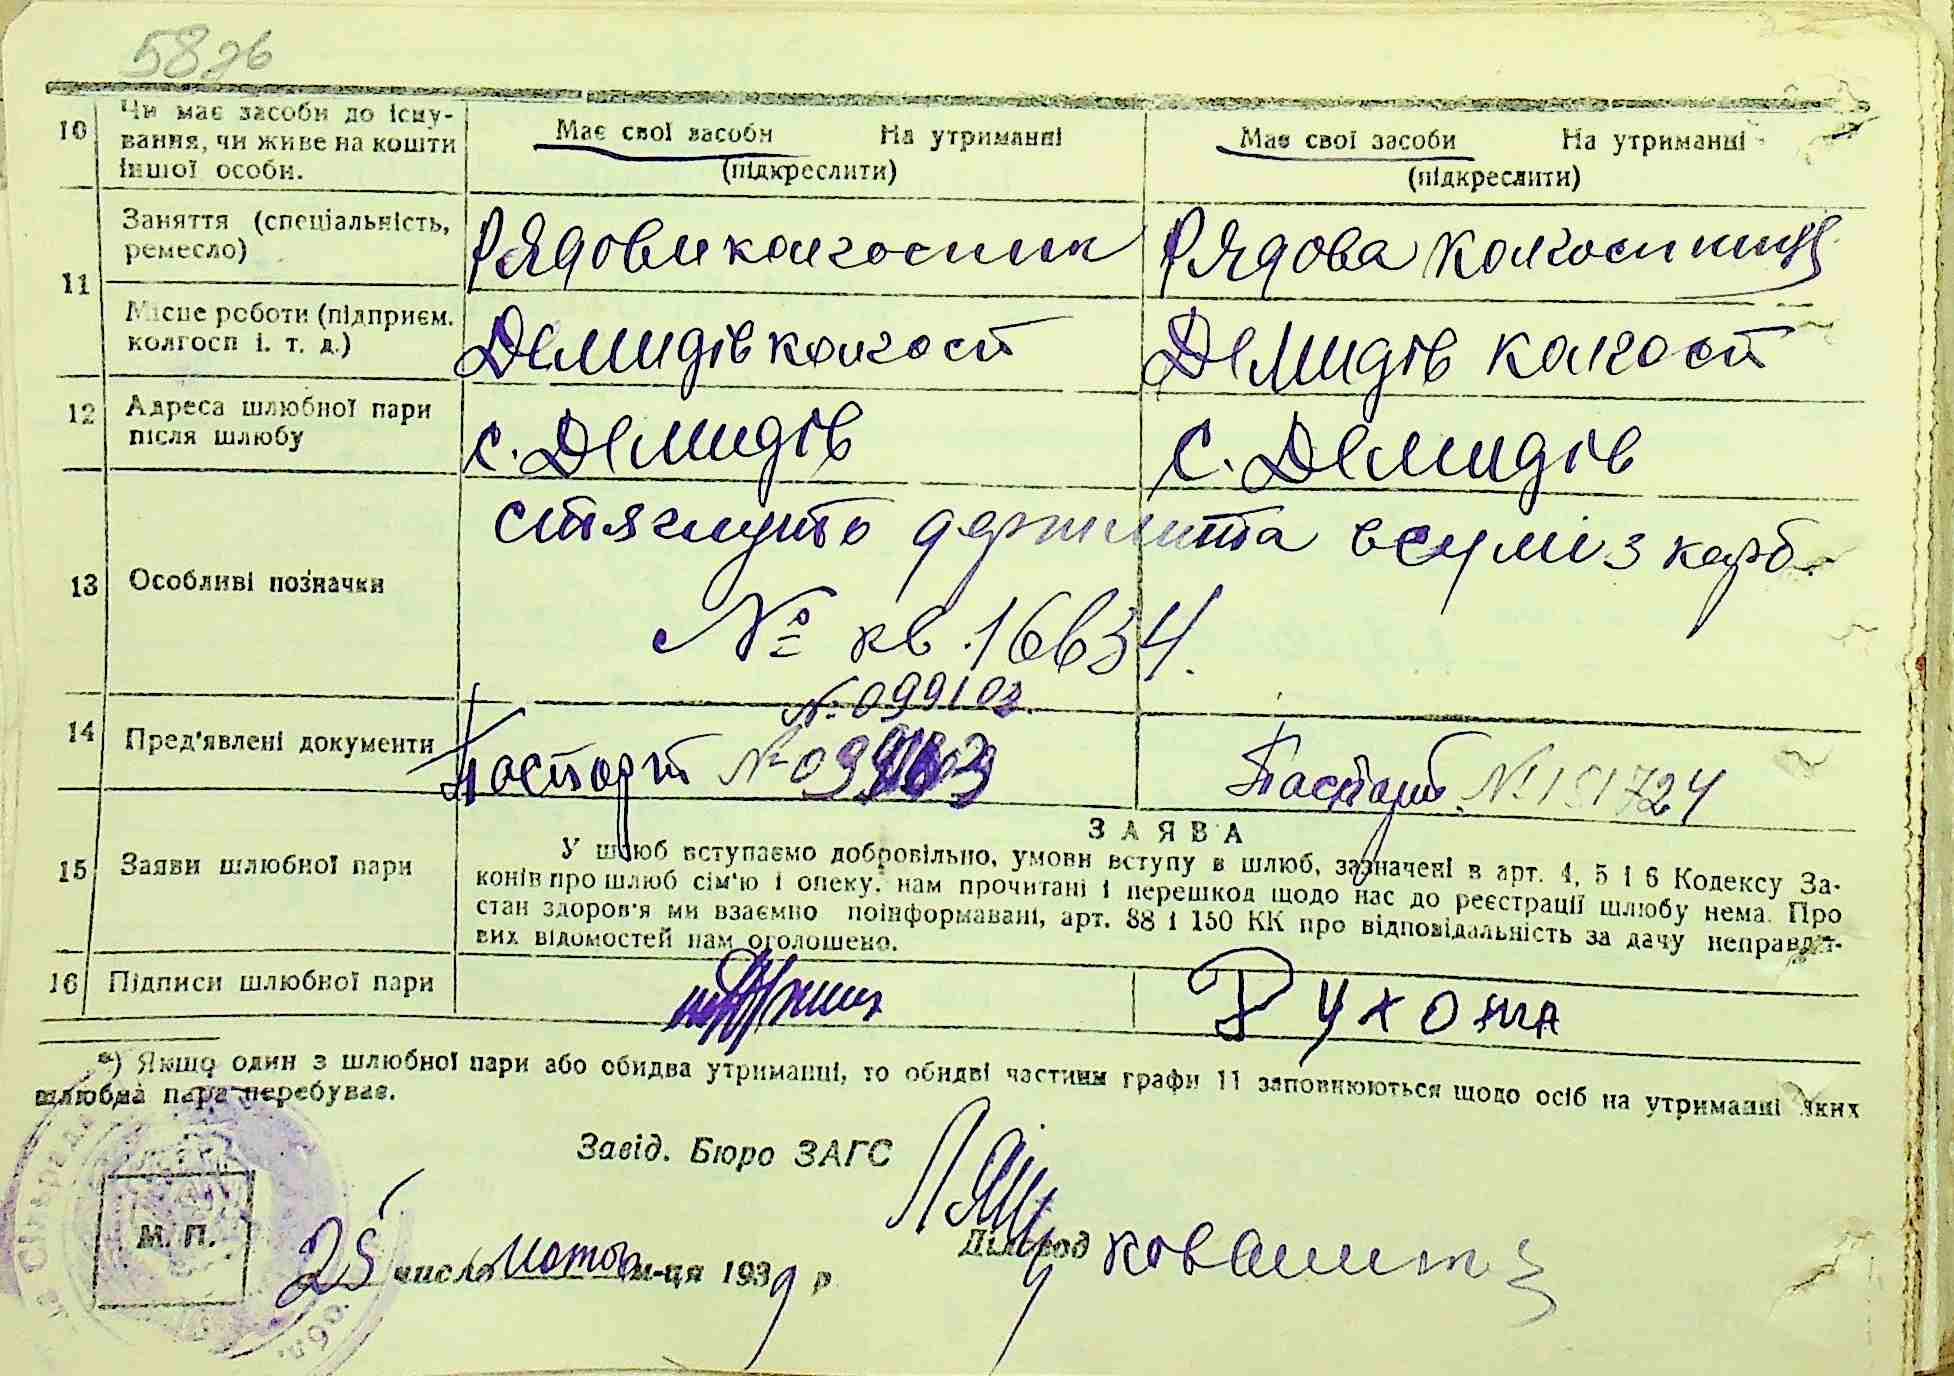 58зв
10 Чи має засоби до існу-
вання, чи живе на кошти
іншої особи.
Має свої засоби На утриманні
(підкреслити)
Має свої засоби На утриманні
(підкреслити)
11 Заняття (спеціальність,
ремесло)
Рядови колгоспник
Рядова колгоспниця
Місце роботи (підприєм.
колгосп і. т. д.)
Демидів колгосп
Демидів колгосп
12 Адреса шлюбної пари
після шлюбу
с. Демидів
с. Демидів
13 Особливі позначки
стягнуто держмита всумі 3 карб.
№ кв. 16634.
14 Пред'явлені документи
№ 099103.
Паспорт №
Паспорт № 151724
15 Заяви шлюбної пари
ЗАЯВА
У шлюб вступаємо добровільно, умови вступу в шлюб, зазначені в арт. 4, 5 і 6 Кодексу За-
конів про шлюб сім'ю і опеку, нам прочитані і перешкод щодо нас до реєстрації шлюбу нема. Про
стан здоров'я ми взаємно поінформавані, арт. 88 і 150 КК про відповідальність за дачу неправди-
вих відомостей нам оголошено.
16 Підписи шлюбної пари
Рухожа
*) Якщо один з шлюбної пари або обидва утриманці, то обидві частини графи 11 заповнюються щодо осіб на утриманні яких
шлюбна пара перебуває.
Завід. Бюро ЗАГС
М. П.
25 число лютого м-ця 1939 р
Діловод